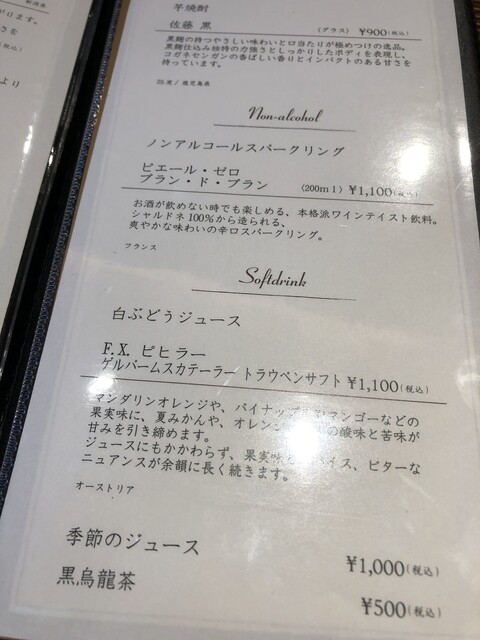 芋焼酎
佐藤 黒
(グラス) ¥900(税込)
黒麹の持つやさしい味わいと口当たりが極めつけの逸品。
黒麹仕込み独特の力強さとしっかりしたボディを表現し、
コガネセンガンの香ばしい香りとインパクトのある甘さを
持っています。
25度/鹿児島県
Non-alcohol
ノンアルコールスパークリング
ピエール・ゼロ
ブラン・ド・ブラン (200ml) ¥1,100(税込)
お酒が飲めない時でも楽しめる、本格派ワインテイスト飲料。
シャルドネ100%から造られる、
爽やかな味わいの辛口スパークリング。
フランス
Softdrink
白ぶどうジュース
F.X. ピヒラー
ゲルバームスカテーラー トラウベンサフト ¥1,100(税込)
マンダリンオレンジや、パイナップ マンゴーなどの
果実味に、夏みかんや、オレン の酸味と苦味が
甘みを引き締めます。
ジュースにもかかわらず、果実味 イス、ビターな
ニュアンスが余韻に長く続きます。
オーストリア
季節のジュース
¥1,000(税込)
黒烏龍茶
¥500(税込)
ります。
さを
より